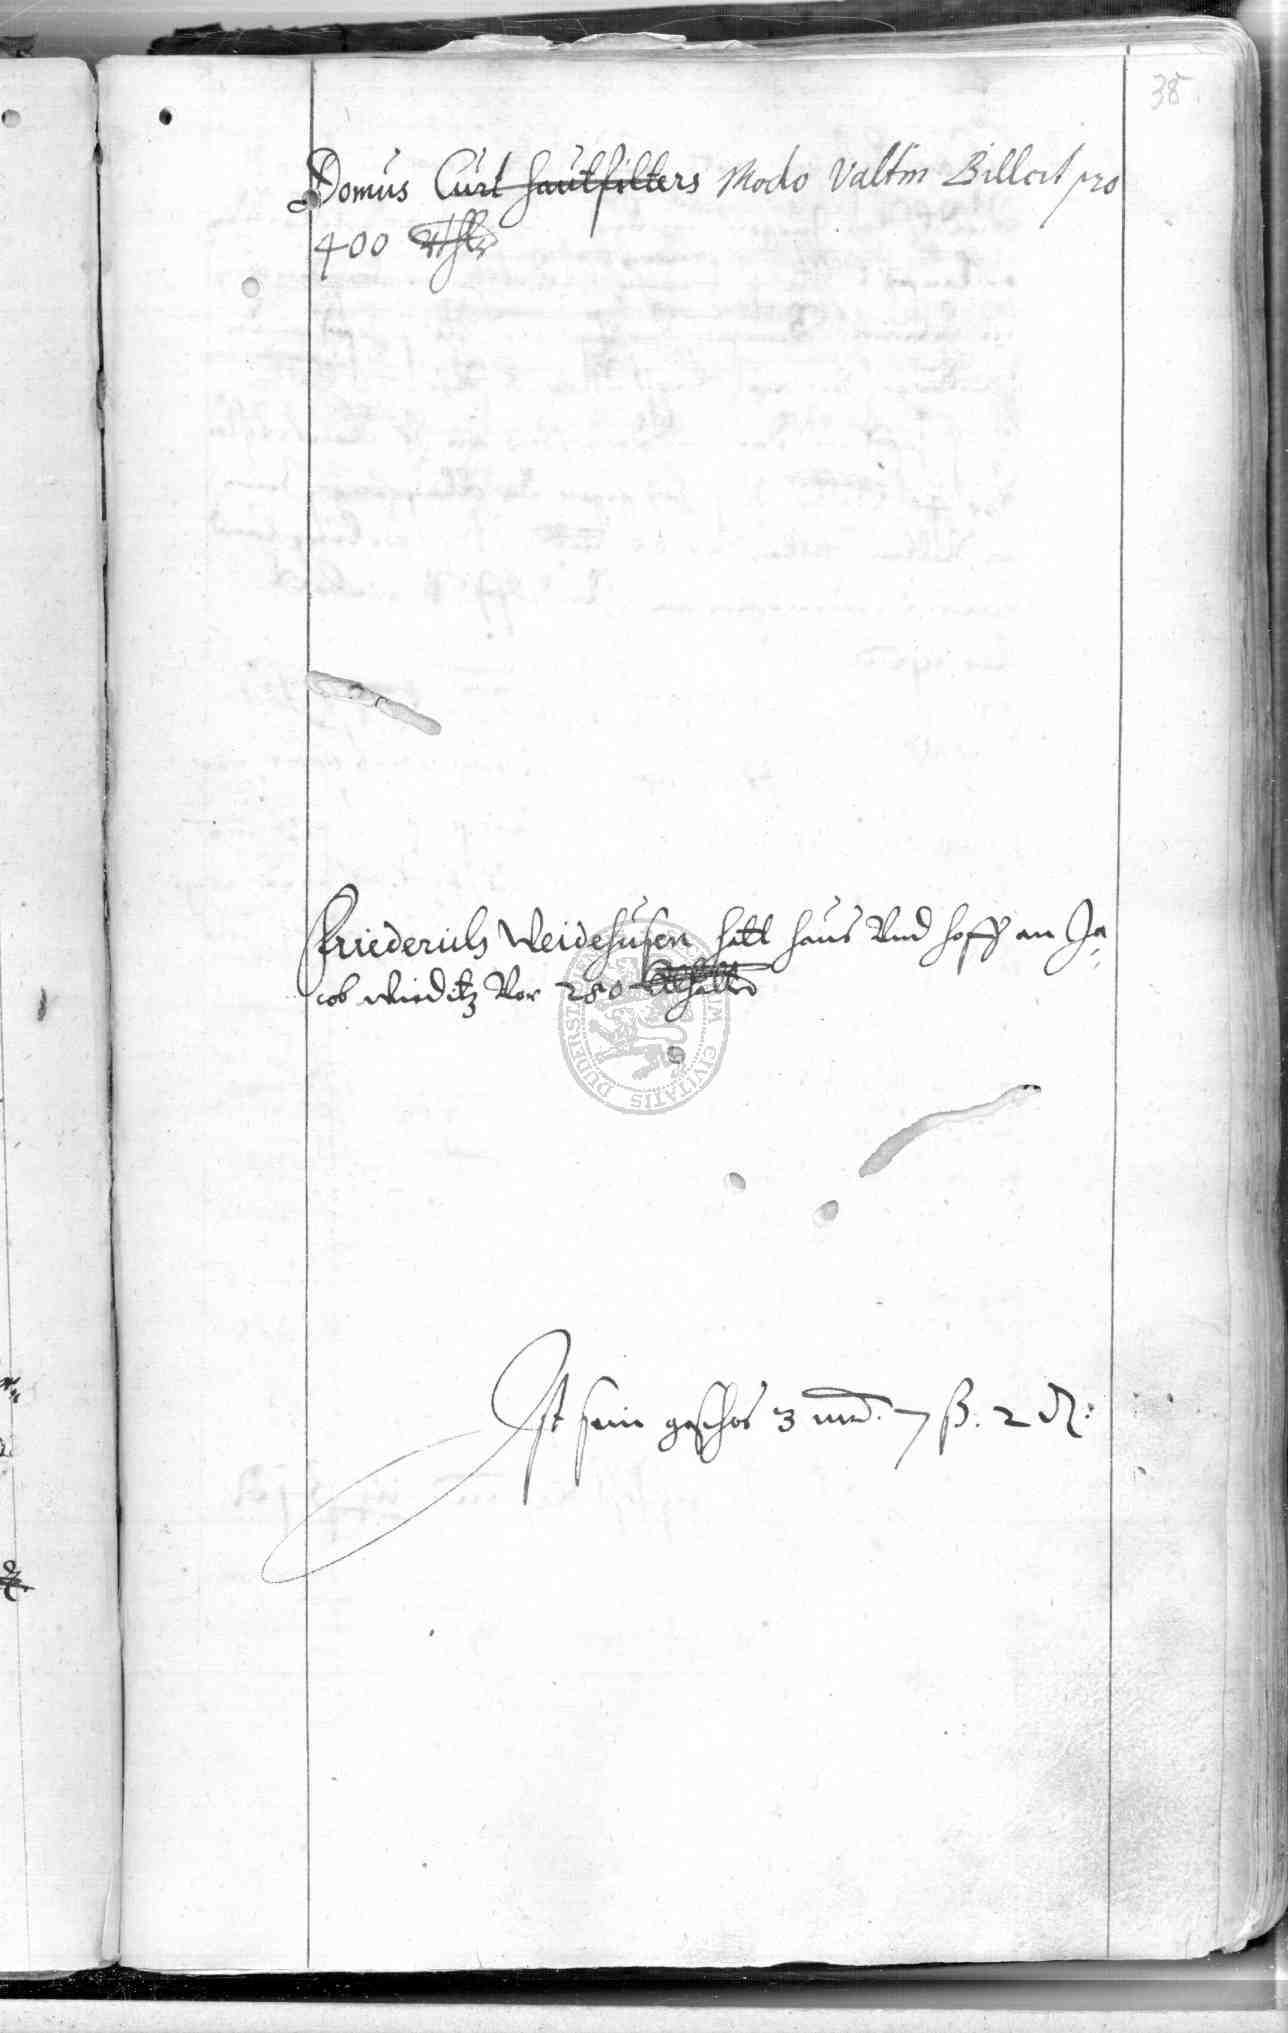 38.
Domus Curt hautfilters Modo Valtin Billert pro
400
Friederich Weidehusen hatt haus Und hoff an Ja
cob Vor 280
Ist sein geschos 3 7 ß. 2
DUDERST CIVITATIS